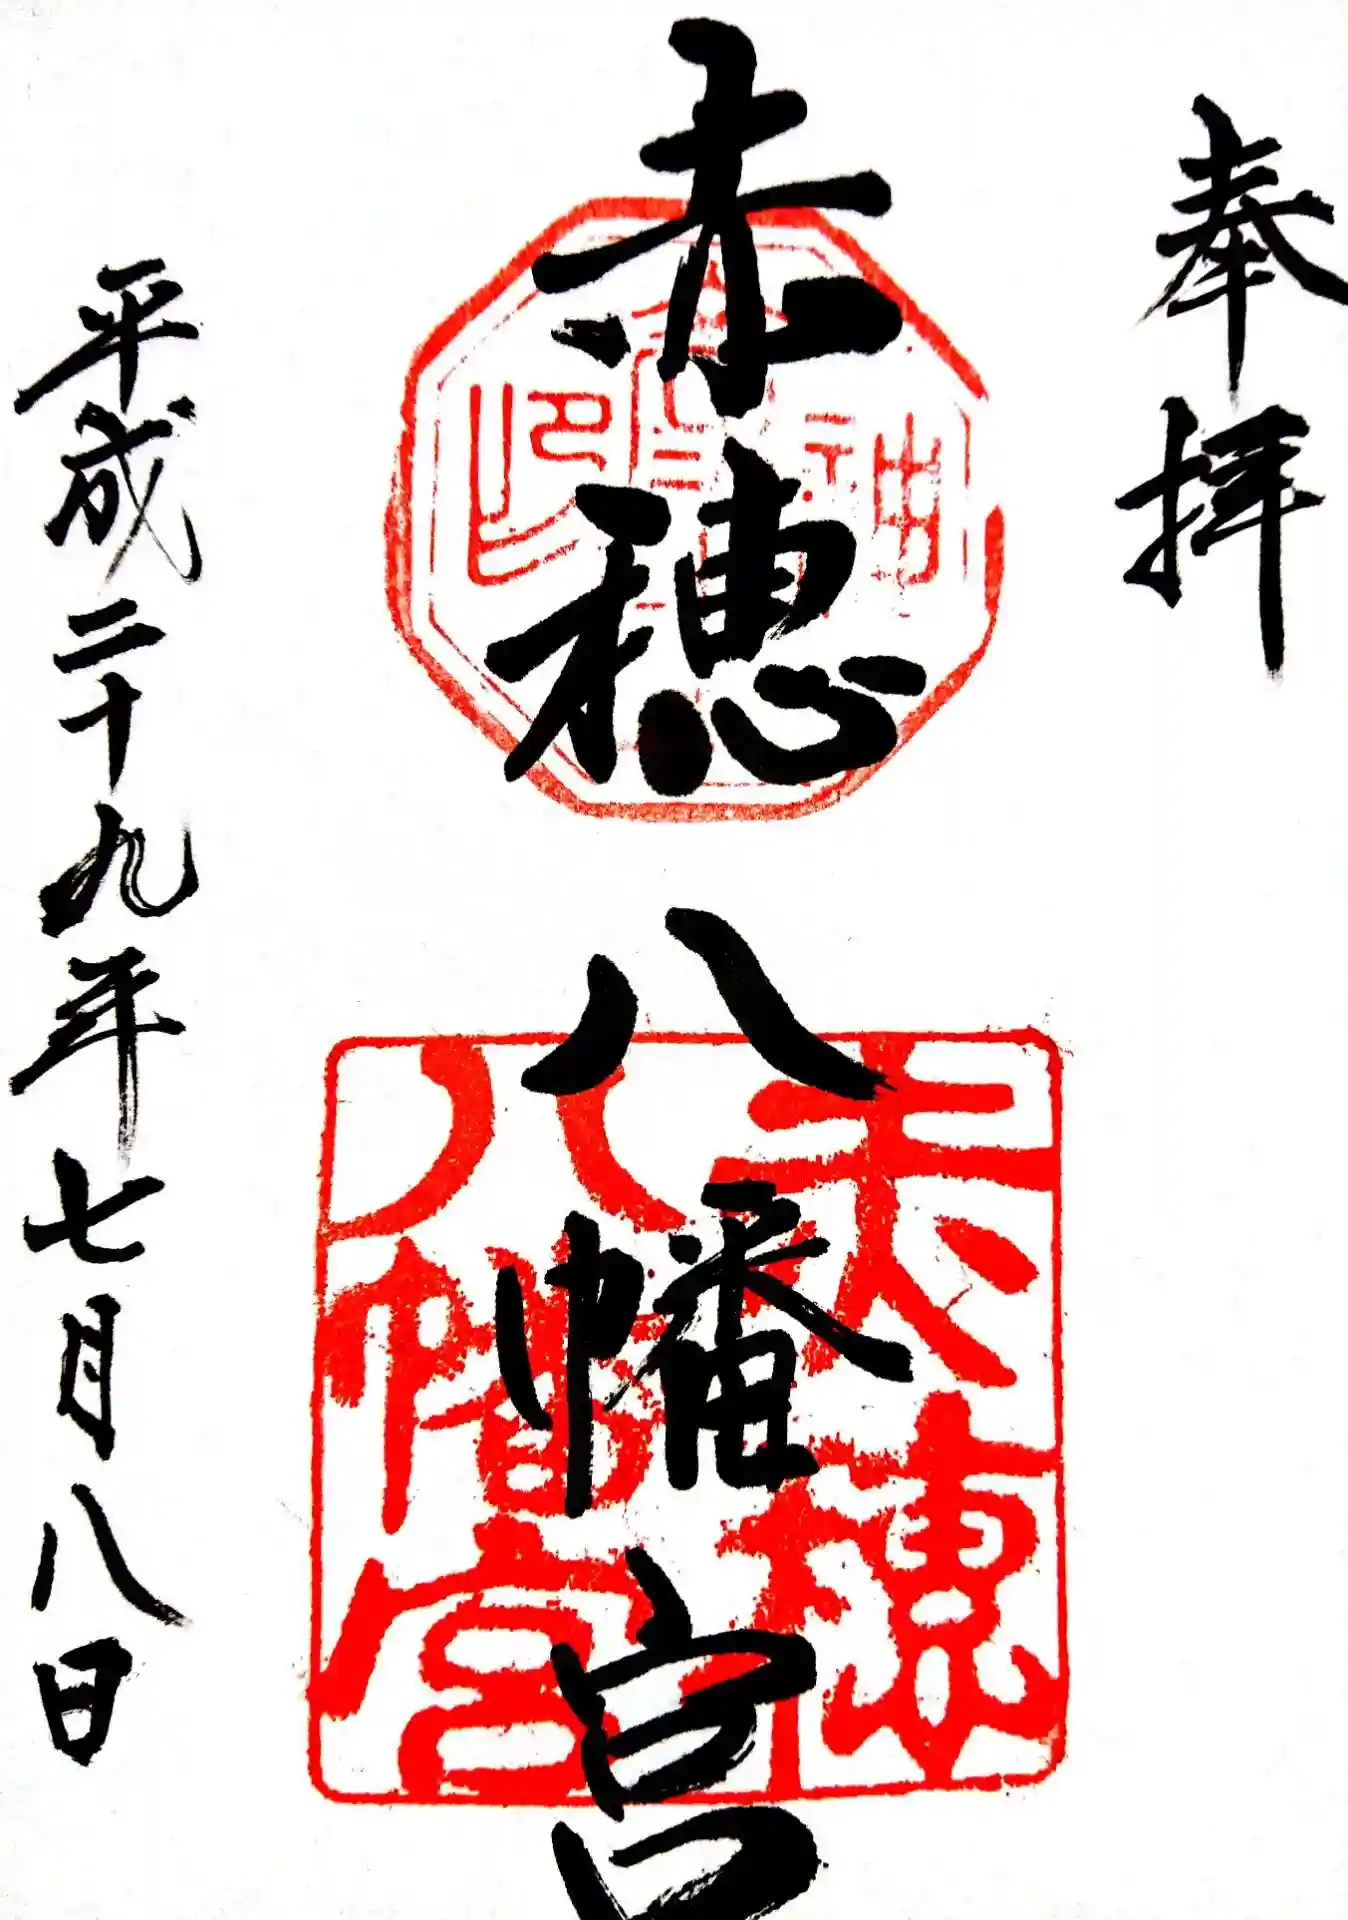 奉拝
赤穂八幡宮
平成二十九年七月八日
赤穂
八幡宮